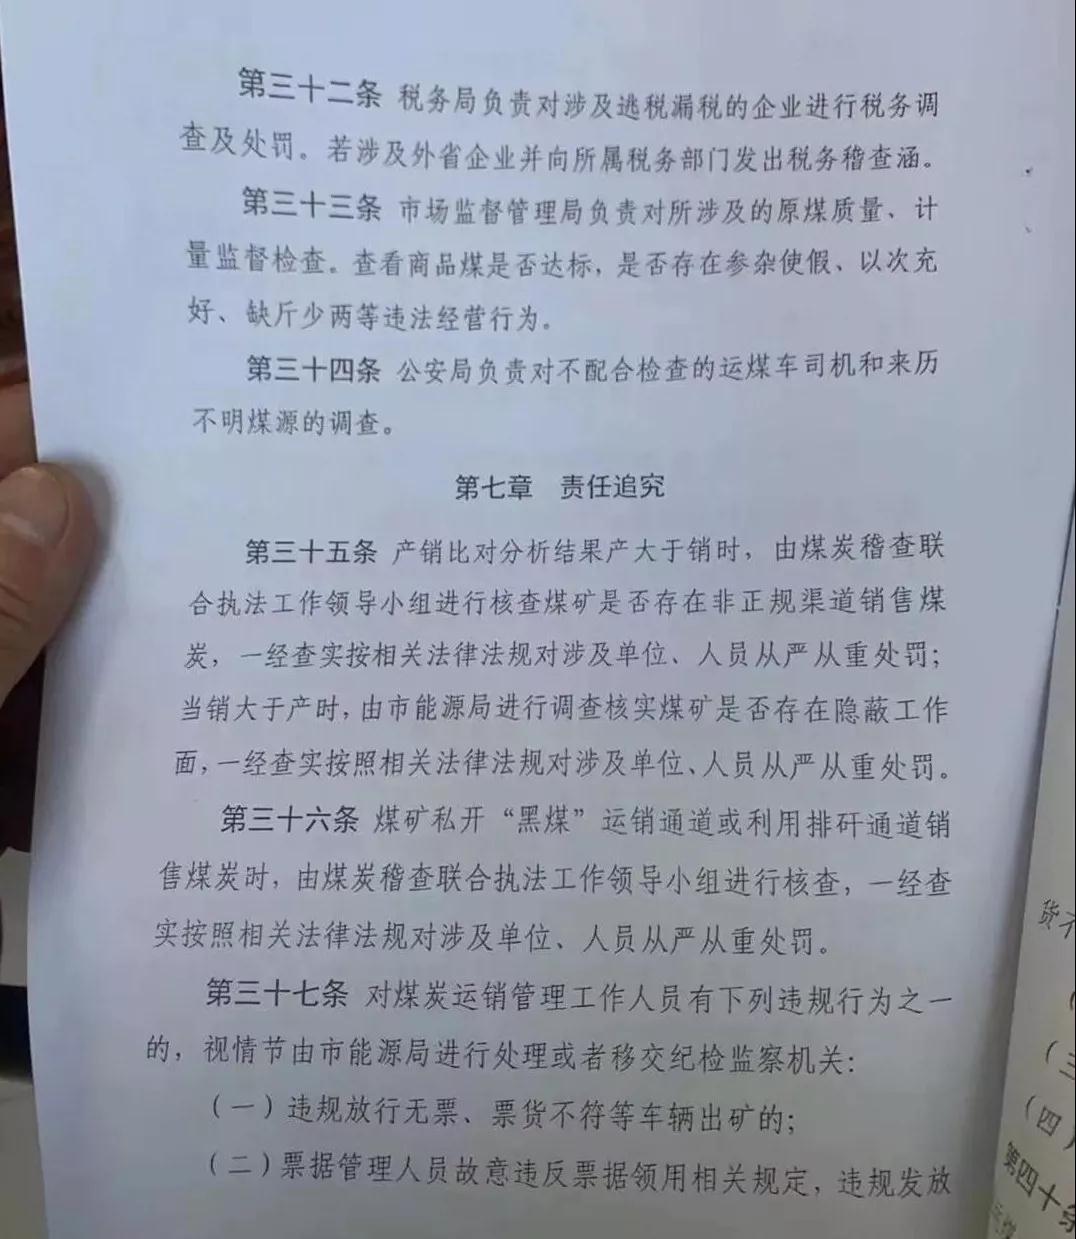 第三十二条 税务局负责对涉及逃税漏税的企业进行税务调
查及处罚。若涉及外省企业并向所属税务部门发出税务稽查涵。
第三十三条 市场监督管理局负责对所涉及的原煤质量、计
量监督检查。查看商品煤是否达标，是否存在参杂使假、以次充
好、缺斤少两等违法经营行为。
第三十四条 公安局负责对不配合检查的运煤车司机和来历
不明煤源的调查。
第七章 责任追究
第三十五条 产销比对分析结果产大于销时，由煤炭稽查联
合执法工作领导小组进行核查煤矿是否存在非正规渠道销售煤
炭，一经查实按相关法律法规对涉及单位、人员从严从重处罚；
当销大于产时，由市能源局进行调查核实煤矿是否存在隐蔽工作
面，一经查实按照相关法律法规对涉及单位、人员从严从重处罚。
第三十六条 煤矿私开“黑煤”运销通道或利用排矸通道销
售煤炭时，由煤炭稽查联合执法工作领导小组进行核查，一经查
实按照相关法律法规对涉及单位、人员从严从重处罚。
第三十七条 对煤炭运销管理工作人员有下列违规行为之一
的，视情节由市能源局进行处理或者移交纪检监察机关：
（一）违规放行无票、票货不符等车辆出矿的；
（二）票据管理人员故意违反票据领用相关规定，违规发放
货不
（三
（四）
第四十条